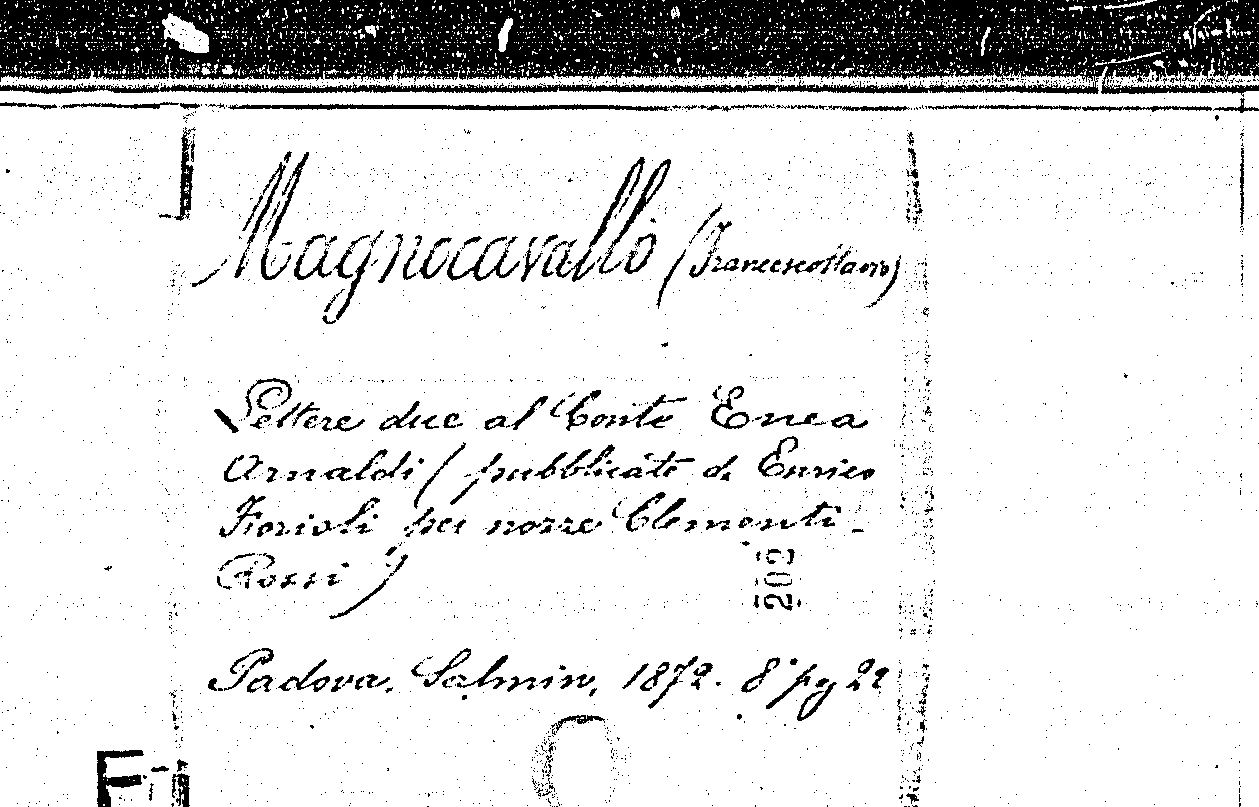 Magnocavallo (Francesco Maria)
Lettere due al Conte Enea
Arnaldi (pubblicate da Enrico
Forioli per nozze Clementi-
Rossi)
202
Padova. Salmin, 1872. 8° pg 22